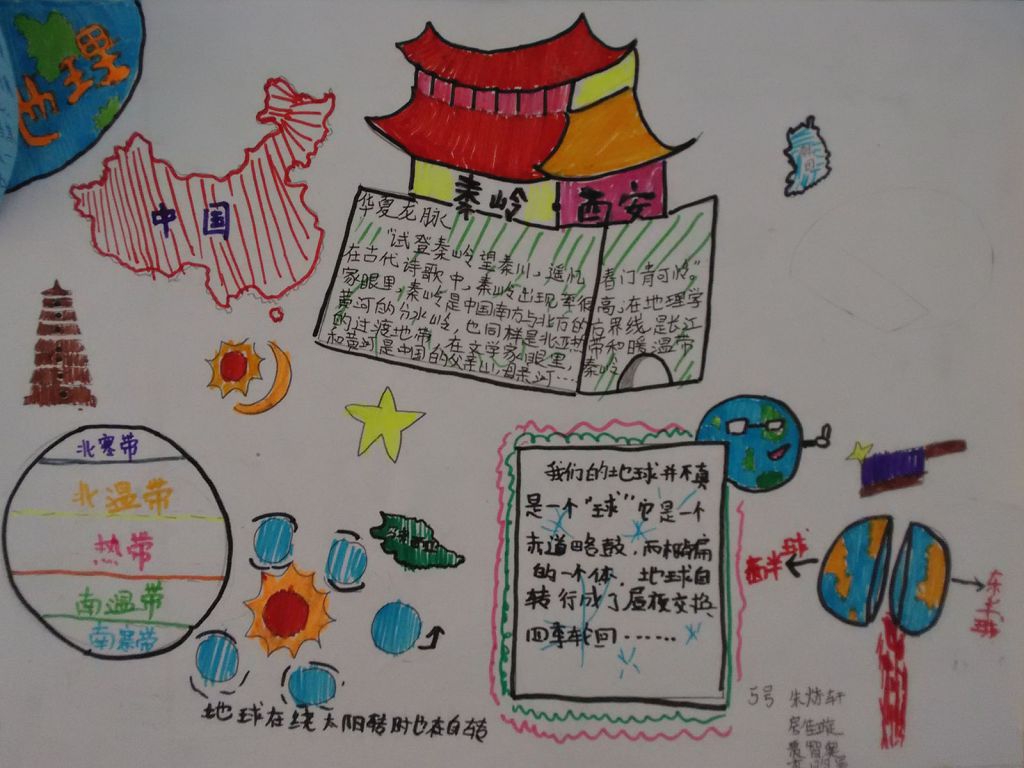 地理
中国
秦岭 西安
华夏龙脉
"试登秦岭望秦川,遥忆青门春可怜"
在古代诗歌中,秦岭出现率很高;在地理学
家眼里,秦岭是中国南方与北方的分界线,是长江
黄河的分水岭,也同样是北亚热带和暖温带
的过渡地带,在文学家眼里,秦岭
和黄河是中国的父亲山/母亲河……
北寒带
北温带
热带
南温带
南寒带
我们的地球并不真
是一个"球"它是一个
赤道略鼓,两极扁
的一个体,地球自
转形成了昼夜交换
四季轮回……
西半球
东半球
地球在绕太阳转时也在自转
5号